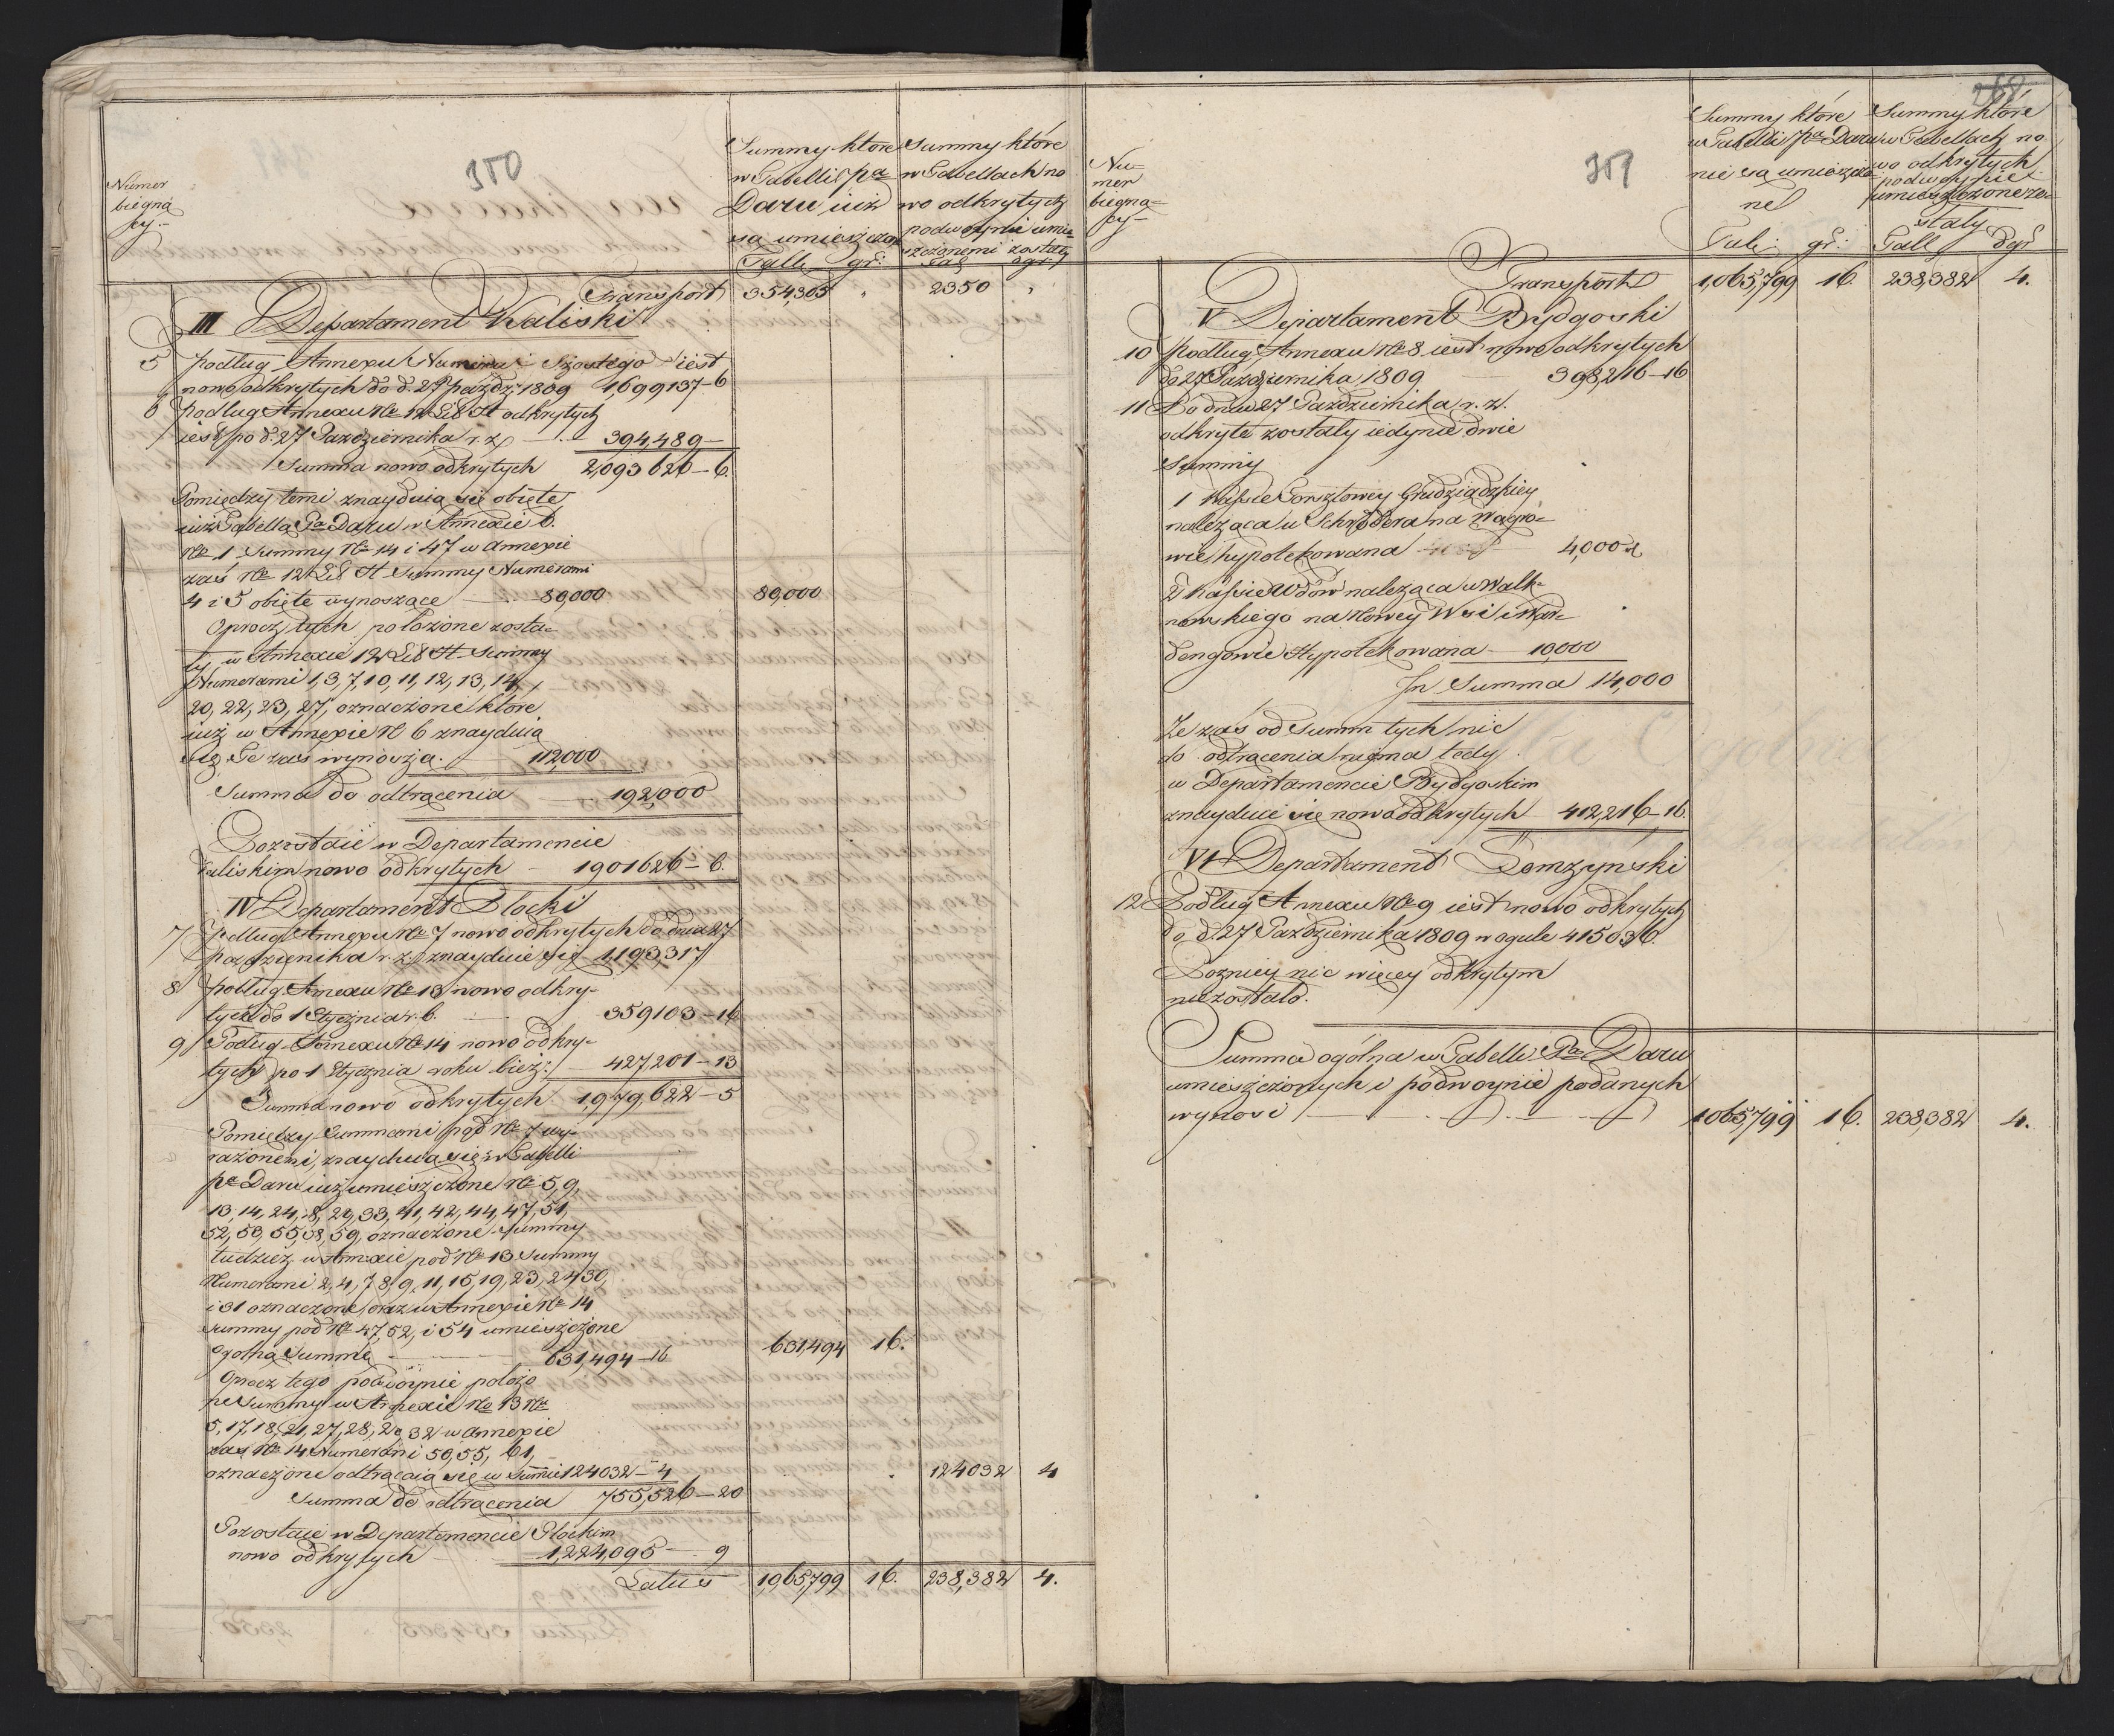 350
Numer
biegną
cy.
Summy które
w Tabelli Pa
Daru iuż
są umieszczon
Tall. gr:
Summy które
w Tabellach no
wo odkrytych
podwoynie umie
szczonemi zostały
Tal dgr
Transport 354305 " 2350 "
III Departament Kaliski
5 podług Annexu Numeru Szóstego iest
nowo odkrytych do d. 27 Paźdz: 1809 1,699137–6
6 podług Annexu No 12 Lit A odkrytych
iest po d. 27 Pazdziernika r. z. 394,489–
Summa nowo odkrytych 2,093626–6.
Pomiędzy temi znayduią się obięte
iuż Tabella Pa Daru w Annexie 6.
No 1 Summy No 14 i 47 w annexie
zaś No 12 Lit A Summy Numerami
4 i 5 obięte wynoszące 80,000 80,000
Oprocz tych położone zosta–
ły w Annexie 12 Lit A Summy
Numerami 1, 3, 7, 10, 11, 12, 13, 14,
20, 22, 23, 27, oznaczone które
iuż w Annexie No 6 znayduią
się. Te zaś wynoszą. 112,000
Summa do odtrącenia 192,000
Pozostaie w Departamencie
Kaliskim nowo odkrytych 1901626–6.
IV Departament Płocki
7 podług Annexu No 7 nowo odkrytych do dnia 27
pazdziernika r. z. znayduie się 1,193,317
8 podług Annexu No 13 nowo odkry–
tych do 1 Stycznia r. b. 359103–16
9 Podług Annexu No 14 nowo odkry–
tych po 1 Stycznia roku bież: 427201–13
Summa nowo odkrytych 1,979,622–5
Pomiędzy Summami pod No 7 wy–
rażonemi, znayduią się w Tabelli
Pa Daru iuż umieszczone No 5, 9,
13, 14, 24, 28, 29, 33, 41, 42, 44, 47, 51,
52, 53, 55, 58, 59, oznaczone Summy
tudzież w Annexie pod No 13 Summy
Numerami 2, 4, 7, 8, 9, 11, 15, 19, 23, 24 30,
i 31 oznaczone oraz w Annexie No 14
Summy pod No 47, 52, i 54 umieszczone
Ogolną Summę 631,494–16 631,494 16.
Oprocz tego podwoynie położo
ne Summy w Annexie No 13 No
5, 17, 18, 21, 27, 28, 29, 32 w annexie
zaś No 14 Numerami 50, 55, 61,
oznaczone odtrącaią się w Summie 124032–4 124032 4
Summa do odtrącenia 755,526–20
Pozostaie w Departamencie Płockim
nowo odkrytych 1,224,095–9
Latus 1,065,799 16. 238,382 4.
351
Nu–
mer
biegną–
cy–
Summy które
w Tabelli Pa Daru
nie są umieszczo
ne
Tal: gr:
Summy które
w Tabellach no
wo odkrytych
podwoynie
umieszczone zo–
stały
Tall dgr
Transport 1,065,799 16. 238,382 4.
V Departament Bydgoski
10 podług Annexu No 8 iest nowo odkrytych
do 27 Pazdziernika 1809 398,216–16
11 Po dniu 27 Pazdziernika r. z.
odkryte zostały iedynie dwie
Summy
1 Kassie Forsztowey Grudziądzkiey
należąca u Schrödera na Wągro–
wie hypotekowana 4,000
2 Kassie Wdów należąca u Walk–
nowskiego na Nowey Wsi i War–
dengowie Hypotekowana 10,000
In Summa 14,000
Ze zaś od Summ tych nic
do odtrącenia niema tedy
w Departamencie Bydgoskim
znayduie się nowo odkrytych 412,216–16.
VI Departament Łomzyński
12 Podług Annexu No 9 iest nowo odkrytych
do d. 27 Pazdziernika 1809 w ogule 415036.
Pozniey nic więcey odkrytym
niezostało.
Summa ogólna w Tabelli Pa Daru
umieszczonych i podwoynie podanych
wynosi 1065,799 16. 238,382 4.